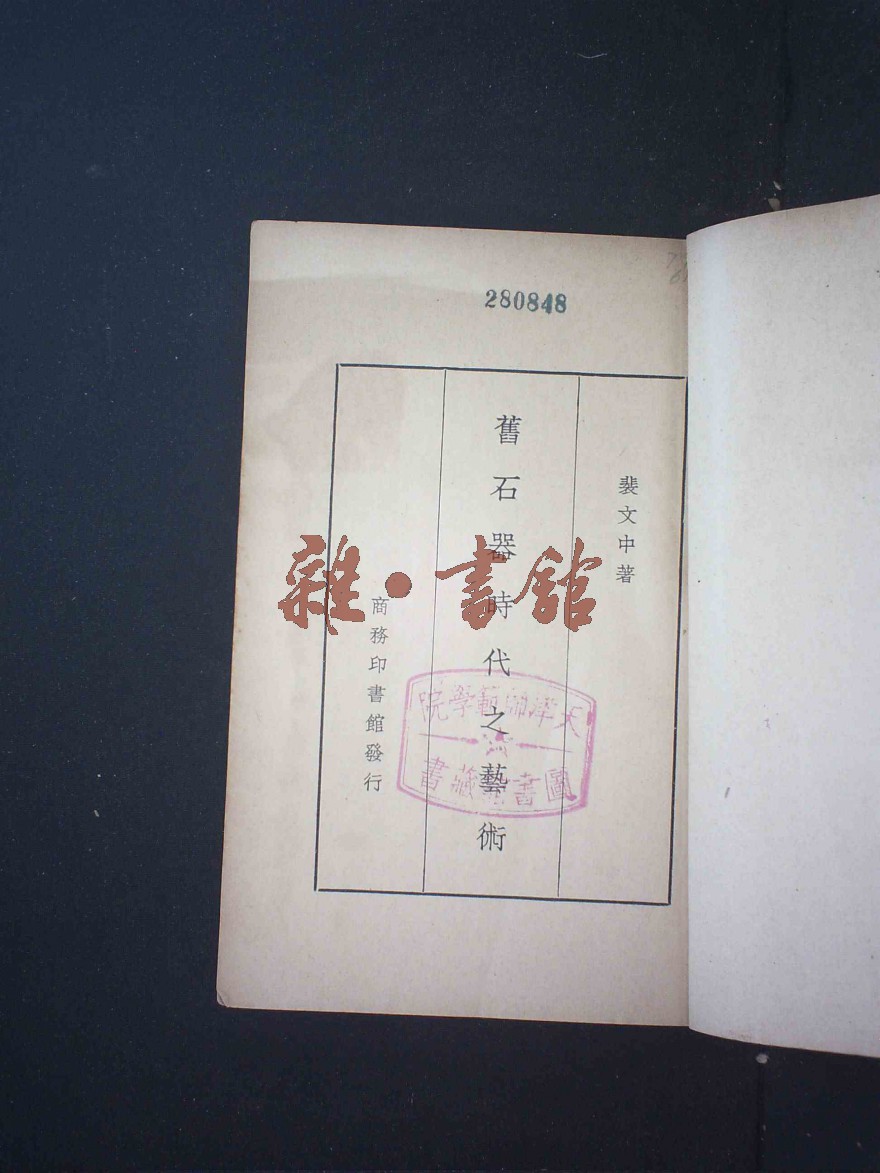 280848
裴文中著
舊石器時代之藝術
商務印書館發行
雜·書館
天津師範學院
圖書館藏書